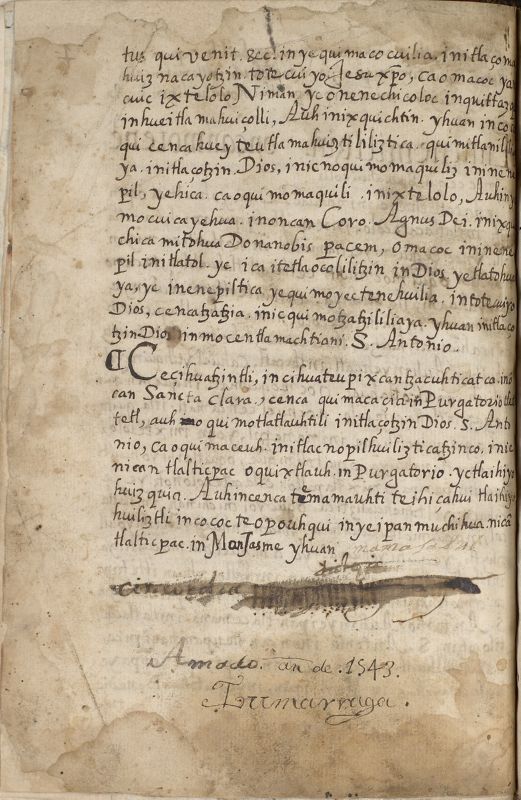 tus qui venit. &c. in ye qui maco cuilia, in itlaçoma
huiz nacayotzin. totecuiyo Jesu xpo, ca o macoc ya
cuic ixtelolo Niman yc onenechicoloc in quittazq
in huei tlamahuiçolli, Auh in ixquichtin. yhuan in coc
qui cenca huey teutlamahuiztililiztica. quimitlanili
ya. in itlaçotzin. Dios, inic no quimomaquiliz in inene
pil, yehica. ca o quimomaquili. in ixtelolo, Auh in y
mocuicayehua. in oncan Coro. Agnus Dei. in ixqu
chica mitohua Dona nobis pacem, omacoc in inene
pil in itlatol. yc ica itetlaocolilitzin in Dios ye tlatohua
ya, yc inenepiltica ye quimoyectenehuilia. in totecuiyo
Dios, cenca tzatzia. inic quimotzatzililiaya. yhuan in itlaço
tzin Dios in mocentlamachtiani. S. Antonio.
Ce çihuatzintli, in cihuateupixcantzacuhticatca. in o
can Sancta Clara, cenca quimacacia in Purgatorio tle
tetl, auh quimotlatlauhtili in itlaçotzin Dios. S. Anto
nio, ca o quimaceuh. in itlacnopilhuiliztica tzinco. inic
nican tlalticpac oquixtlauh. in Purgatorio. yc tlaihiyo
huizquia. Auh in cenca temamauhti teihiçahui tlaihiyo
huiliztli in cococ teopouhqui in ye ipan muchihua. nicā
tlalticpac. in Monjasme yhuan
Amado. an de. 1543.